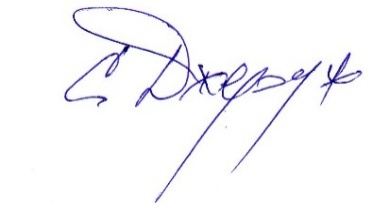 С Джеруф